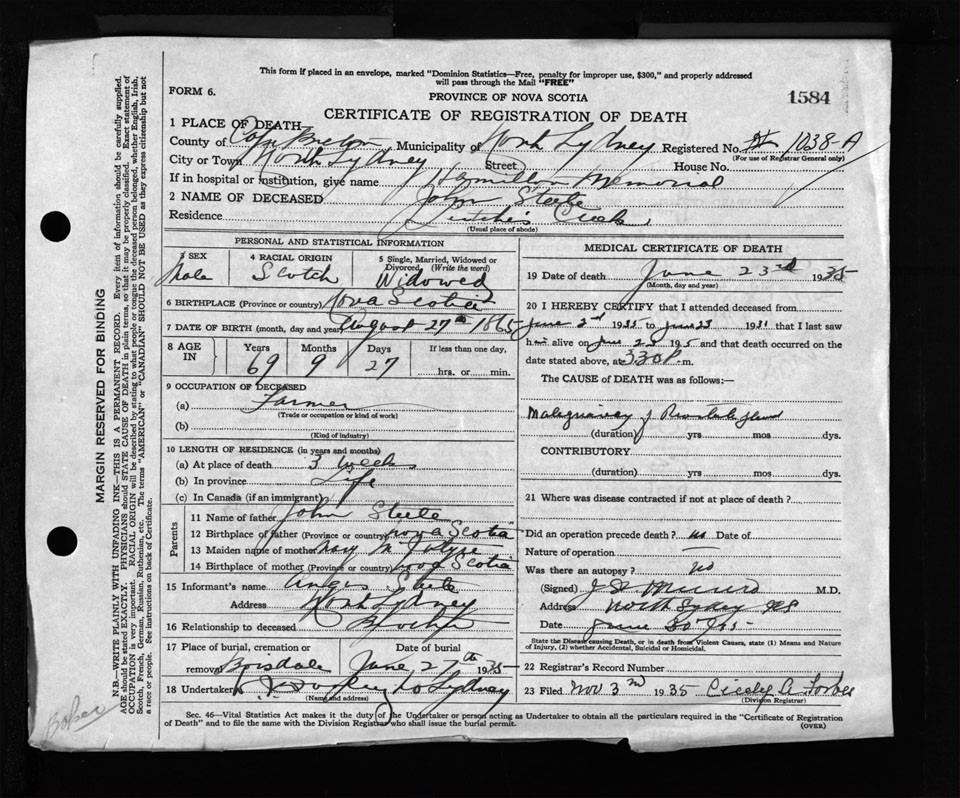 This form if placed in an envelope, marked "Dominion Statistics—Free, penalty for improper use, $300," and properly addressed
will pass through the Mail "FREE"
FORM 6.
PROVINCE OF NOVA SCOTIA
1584
CERTIFICATE OF REGISTRATION OF DEATH
1 PLACE OF DEATH—
County of Cape Breton Municipality of North Sydney Registered No. 1038-A
(For use of Registrar General only)
City or Town North Sydney Street House No.
If in hospital or institution, give name Hamilton Memorial
2 NAME OF DECEASED John Steele
Residence Leitches Creek
(Usual place of abode)
PERSONAL AND STATISTICAL INFORMATION
3 SEX 4 RACIAL ORIGIN 5 Single, Married, Widowed or
Divorced (Write the word)
Male Scotch Widowed
6 BIRTHPLACE (Province or country) Nova Scotia
7 DATE OF BIRTH (month, day and year) August 27th 1865
8 AGE IN Years Months Days If less than one day,
69 9 27 hrs. or min.
9 OCCUPATION OF DECEASED
(a) Farmer
(Trade or occupation or kind of work)
(b)
(Kind of industry)
10 LENGTH OF RESIDENCE (in years and months)
(a) At place of death 3 weeks
(b) In province Life
(c) In Canada (if an immigrant)
Parents
11 Name of father John Steele
12 Birthplace of father (Province or country) Nova Scotia
13 Maiden name of mother Mary
14 Birthplace of mother (Province or country) Nova Scotia
15 Informant's name Angus Steele
Address North Sydney
16 Relationship to deceased Brother
17 Place of burial, cremation or Date of burial
removal Boisdale June 27th 1935
18 Undertaker Sydney
(Name and address)
MEDICAL CERTIFICATE OF DEATH
19 Date of death June 23rd 1935
(Month, day and year)
20 I HEREBY CERTIFY that I attended deceased from
June 3rd 1935 to June 23 193 that I last saw
him alive on June 23 1935 and that death occurred on the
date stated above, at 330 P.m.
The CAUSE of DEATH was as follows:—
Malignancy of Prostate gland
(duration) yrs mos dys.
CONTRIBUTORY
(duration) yrs mos dys.
21 Where was disease contracted if not at place of death?
Did an operation precede death? no Date of
Nature of operation
Was there an autopsy? no
(Signed) Munro M.D.
Address North Sydney NS
Date June
State the Disease causing Death, or in death from Violent Causes, state (1) Means and Nature
of Injury, (2) whether Accidental, Suicidal or Homicidal.
22 Registrar's Record Number
23 Filed Nov 3rd 1935 Cicely A Forbes
(Division Registrar)
Sec. 46—Vital Statistics Act makes it the duty of the Undertaker or person acting as Undertaker to obtain all the particulars required in the "Certificate of Registration
of Death" and to file the same with the Division Registrar who shall issue the burial permit.
(OVER)
MARGIN RESERVED FOR BINDING
N.B.—WRITE PLAINLY WITH UNFADING INK—THIS IS A PERMANENT RECORD. Every item of information should be carefully supplied.
AGE should be stated EXACTLY. PHYSICIANS should STATE CAUSE OF DEATH in plain terms, so that it may be properly classified. Exact statement of
OCCUPATION is very important. RACIAL ORIGIN will be described by stating to what people or tongue the deceased person belonged, whether English, Irish,
Scotch, French, German, Russian, Ruthenian, etc. The terms "AMERICAN" or "CANADIAN" SHOULD NOT BE USED as they express citizenship but not
a race or people. See instructions on back of Certificate.